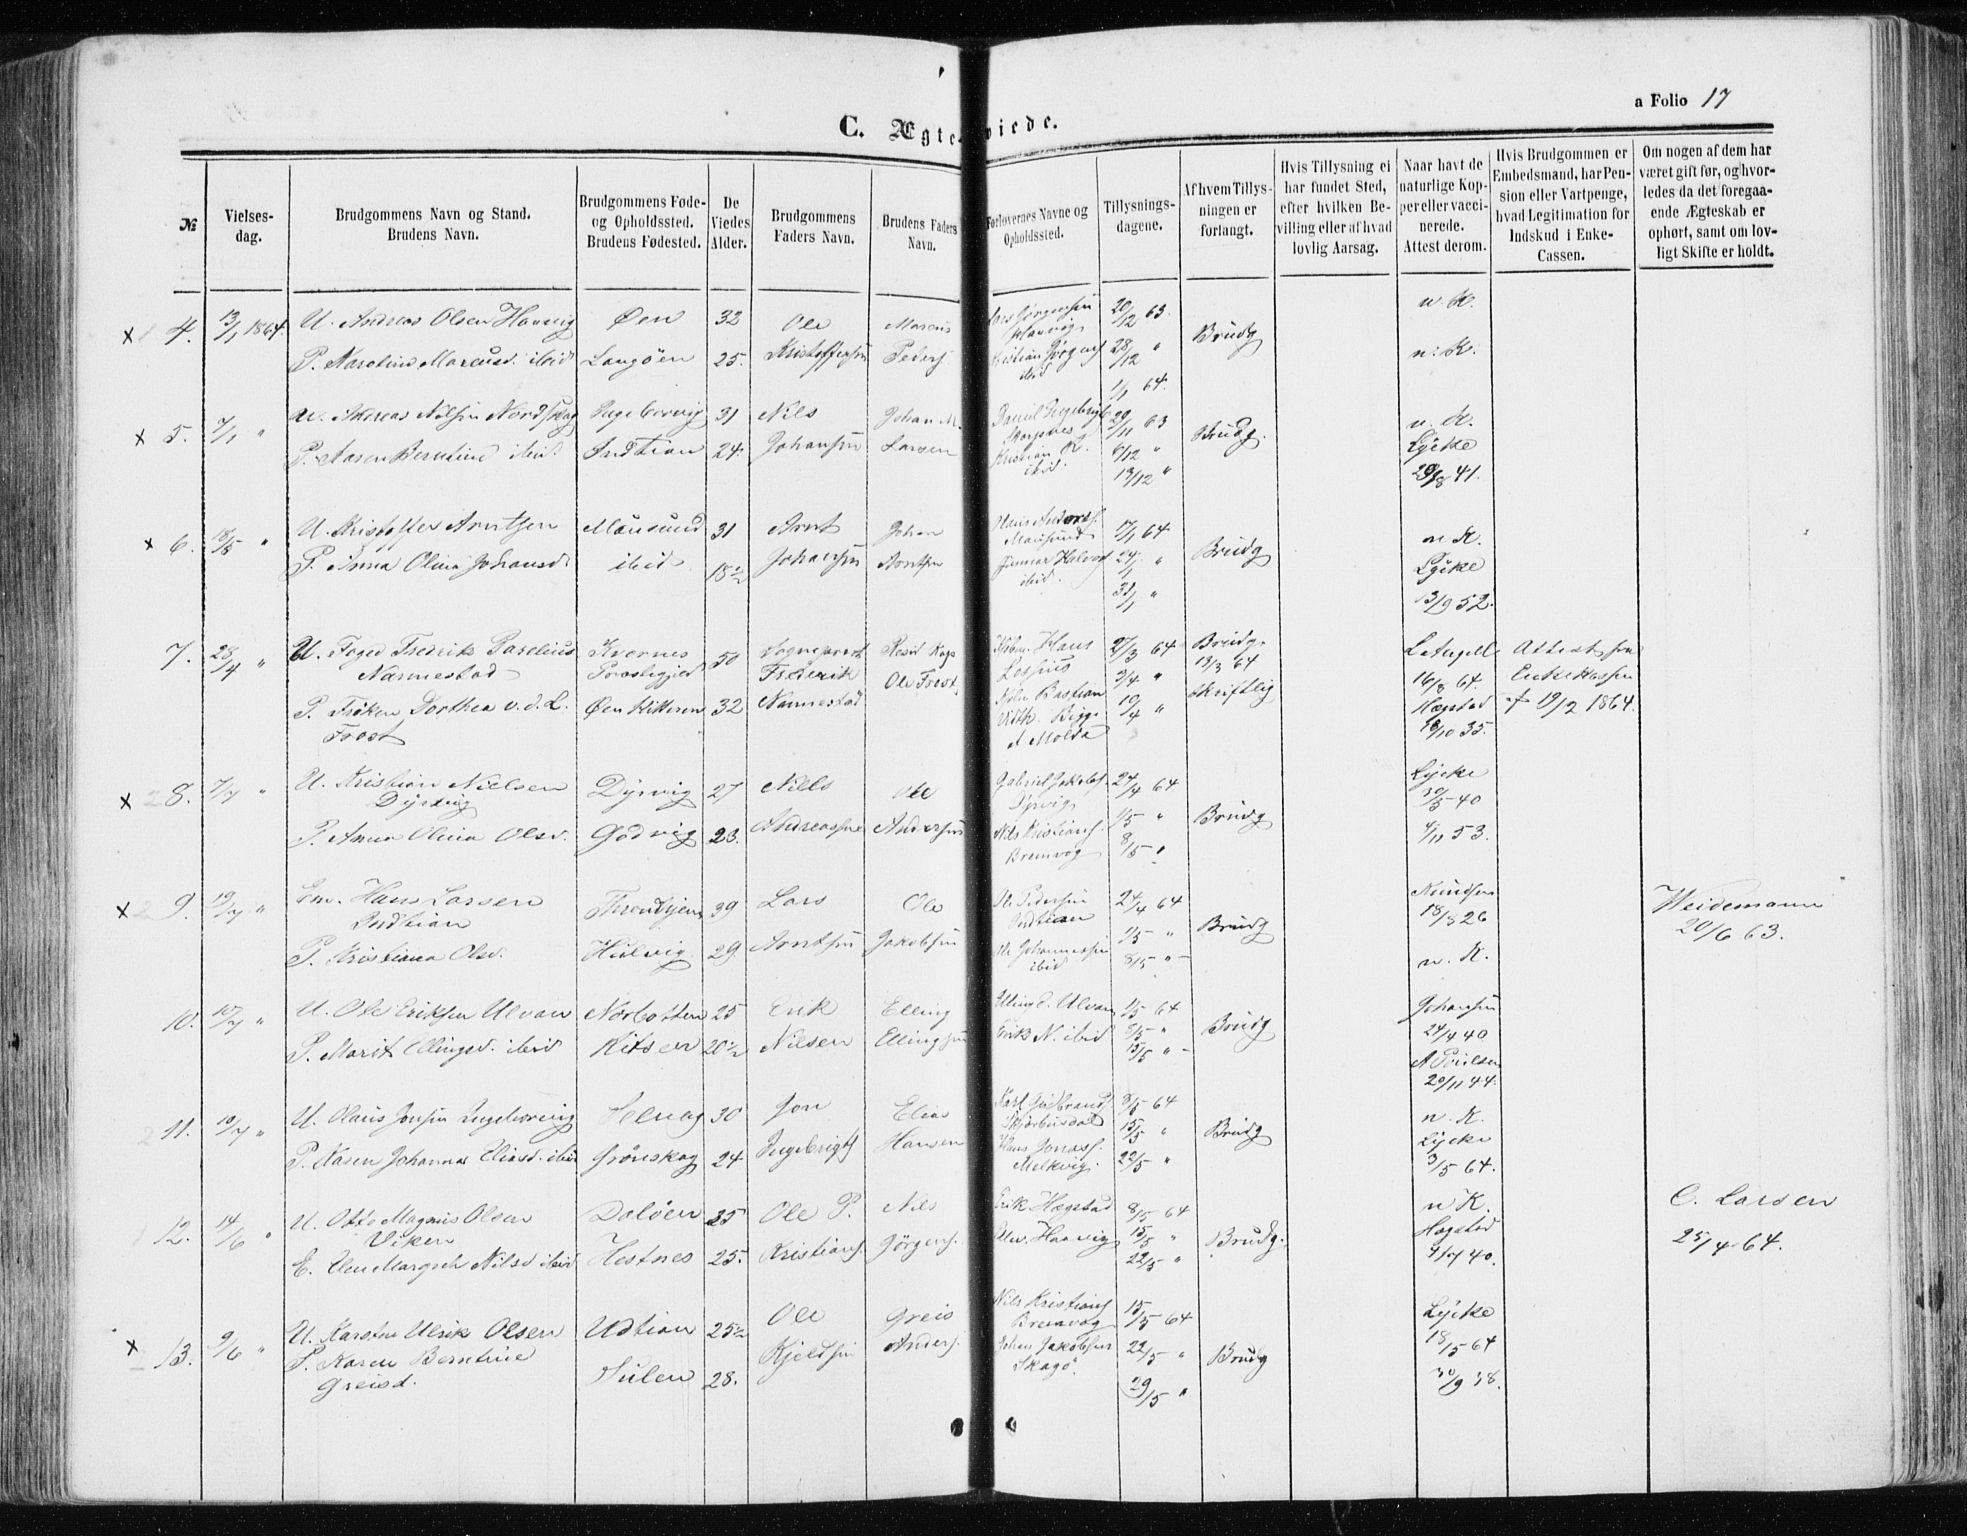 a Folio 17
C. Ægteviede.
№
Vielses-
dag.
Brudgommens Navn og Stand.
Brudens Navn.
Brudgommens Føde-
og Opholdssted.
Brudens Fødested.
De
Viedes
Alder.
Brudgommens
Faders Navn.
Brudens Faders
Navn.
Forlovernes Navne og
Opholdssted.
Tillysnings-
dagene.
Af hvem Tillys-
ningen er
forlangt.
Hvis Tillysning ei
har fundet Sted,
efter hvilken Be-
villing eller af hvad
lovlig Aarsag.
Naar havt de
naturlige Kop-
per eller vacci-
nerede.
Attest derom.
Hvis Brudgommen er
Embedsmand, har Pen-
sion eller Vartpenge,
hvad Legitimation for
Indskud i Enke-
Cassen.
Om nogen af dem har
været gift før, og hvor-
ledes da det foregaa-
ende Ægteskab er
ophørt, samt om lov-
ligt Skifte er holdt.
x 4. 13/1 1864. U. Andreas Olsen Hanvig Øen 32 Ole Marcus Lars Jørgensen Hanvig 20/12 63. Brudg n. K.
P. Marcusd. ibid Langöen 25. Kristoffersen Peders. Kristian Jörgens. ibid 28/12 " n. K.
1/1 64.
x 5. 7/1 " U. Andreas Nilsen Nordskag Ingeborvig 31 Nils Johan M. Daniel 29/11 63 Brudg. n. K.
P. Aasen Berntine ibid Indtian 24. Johansen Larsen Kristian K. ibid. 6/12 " Lycke
13/12 " 29/8 41.
x 6. 18/5 " U. Kristoffer Arntsen Mausund 31 Arnt Johan Hans Anders. Mausund 17/1 64 Brudg n. K.
P. Anna Olina Johansd. ibid 18 1/2 Johansen Arntsen Gunnar Halvors. ibid. 24/1 " Lycke
31/1 " 13/9 52.
7. 28/4 " U. Foged Fredrik Parelius Kvernes 50 Sogneprest Hans 27/3 64 Brudg. L. Angell Attest fra
Nannestad Prestegjeld Frederik Ole Frost Lossius 3/4 " 13/3 64 16/8 64. Enkekassen
P. Frøken Dorthea v. d. L. Øen Hitteren 32 Nannestad Bastian 10/4 " Skriftlig Hægstad 19/2 1864.
Frost Bigge 10/10 35.
af Molde
x 8. 7/7 " U. Kristian Nielsen Dyrvig 27 Nils Ole Gabriel Jakobs. 24/4 64 Lycke
Dyrvig Dyrvig 1/5 " Brudg 30/5 40
P. Anna Olina Olsd. Godvig 23. Andreassen Andersen Nils Kristians. 8/5 " 4/11 53.
Bremvog
x 9. 19/7 " Em. Hans Larsen Throndhjem 39 Lars Ole Ole Pedersen 24/4 64 Knudsen Weidemann
Indtian Indtian 1/5 " Brudg 18/8 26 20/6 63.
P. Kristiana Olsd. Hulvig 29 Arntsen Jakobsen Ole Johannessen ibid 8/5 " n. K.
10. 10/7 " U. Ole Eriksen Ulvan Norbotten 25 Erik Elling Elling E. Ulvan 1/5 64 Johansen
P. Marit Ellingsd. ibid 20 1/2 Nilsen Ellingsen Erik N. ibid 8/5 " Brudg 24/4 40
15/5 " A Poulsen
20/11 44.
11. 10/7 " U. Olaus Jonsen Ingeborvig 30 Jon Elias Karl Gulbrands. 8/5 64 n. K.
P. Aasen Johanna Eliasd. ibid Grönskag 24 Ingebrigts. Hansen Skjærbusdal 15/5 " Brudg Lycke
Hans Jonass. Melkvig. 22/5 " 3/5 64.
12. 14/6 " U. Otto Magnus Olsen Dolöen 25 Ole P. Nils Erik Hægstad 8/5 64 n K. C. Larsen
Viken Hanvig 15/5 " Brudg. Hagstad 25/4 64.
E. Nilsd ibid Hestnes 25. Kristians. Jörgens. 22/5 " 4/7 40.
x 13. 9/6 " U. Karsten Ulrik Olsen Udtian 25 1/2 Ole Greis Nils Kristians. 15/5 64 Lycke
P. Karen Berntine Sulen 28. Kjeldsen Anders. Bremvog 22/5 " Brudg 18/5 64
Greisd. Johan Jakobsen Skagö. 29/5 " 30/9 38.